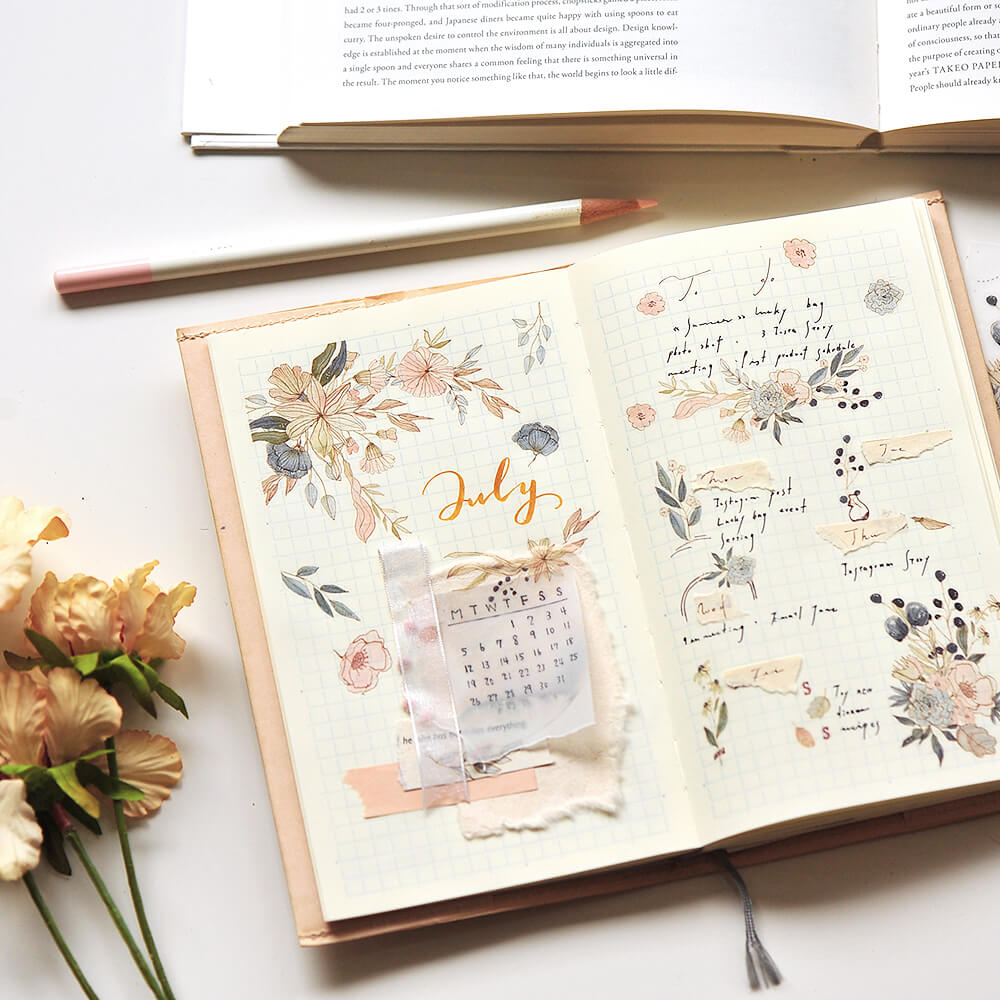 had 2 or 3 tines. Through that sort of modification process, chopsticks gained a
became four-pronged, and Japanese diners became quite happy with using spoons to eat
curry. The unspoken desire to control the environment is all about design. Design knowl-
edge is established at the moment when the wisdom of many individuals is aggregated into
a single spoon and everyone shares a common feeling that there is something universal in
the result. The moment you notice something like that, the world begins to look a little dif-
ate a beautiful form or
ordinary people already
of consciousness, so that
the purpose of creating
year's TAKEO PAPER
People should already
July
M T W T F S S
1 2 3 4
5 6 7 8 9 10 11
12 13 14 15 16 17 18
19 20 21 22 23 24 25
26 27 28 29 30 31
he she has everything
To do
a summer lucky bag
photo shot . 3 Insta Story
meeting . Post product schedule
Mon
Instagram post
Lucky bag event
setting
Tue
Thu
Instagram Story
Wed
meeting . Email
S
S
Try new
dinner
recipes